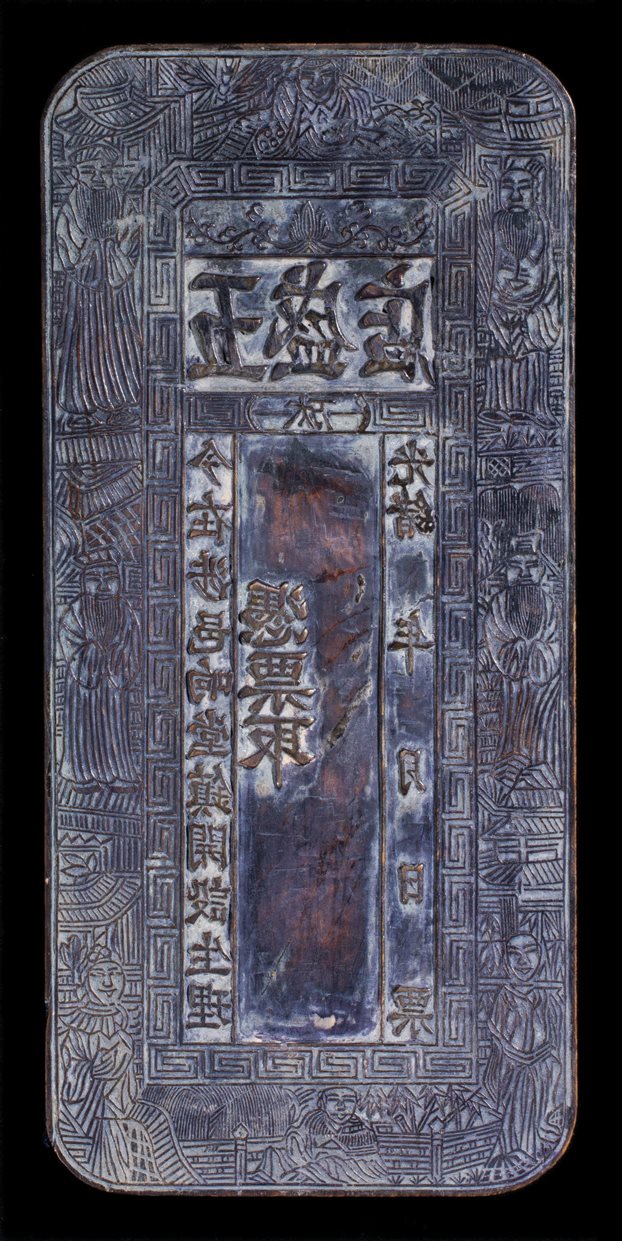 玉盛店
今在涉邑向堂鎮開設生理
憑票取
光緒 年 月 日 票